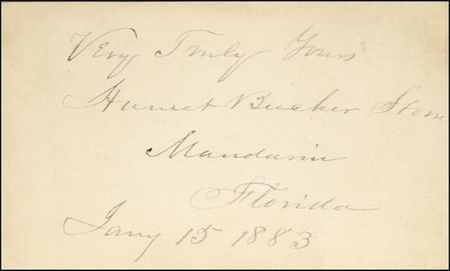 Very Truly Yours
Harriet Beecher Stowe
Mandarin
Florida
Jany 15 1883